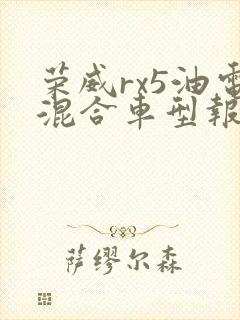 荣威rx5油電
混合車型報
萨缪尔森